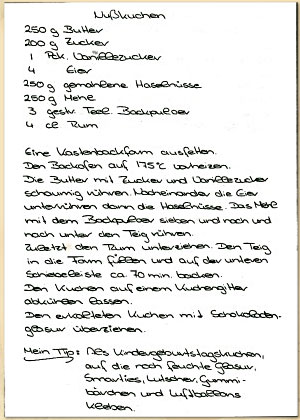 Nußkuchen
250 g Butter
200 g Zucker
1 Pck. Vanillezucker
4 Eier
250 g gemahlene Haselnüsse
250 g Mehl
3 gestr. Teel. Backpulver
4 cl Rum
Eine Kastenbackform ausfetten.
Den Backofen auf 175°C vorheizen.
Die Butter mit Zucker und Vanillezucker
schaumig rühren. Nacheinander die Eier
unterrühren dann die Haselnüsse. Das Mehl
mit dem Backpulver sieben und nach und
nach unter den Teig rühren.
Zuletzt den Rum unterziehen. Den Teig
in die Form füllen und auf der unteren
Schiebeleiste ca. 70 min. backen.
Den Kuchen auf einem Kuchengitter
abkühlen lassen.
Den erkalteten Kuchen mit Schokoladen-
glasur überziehen.
Mein Tip: Als Kindergeburtstagskuchen,
auf die noch feuchte Glasur,
Smarties, Lutscher, Gummi-
bärchen und Luftballons
kleben.